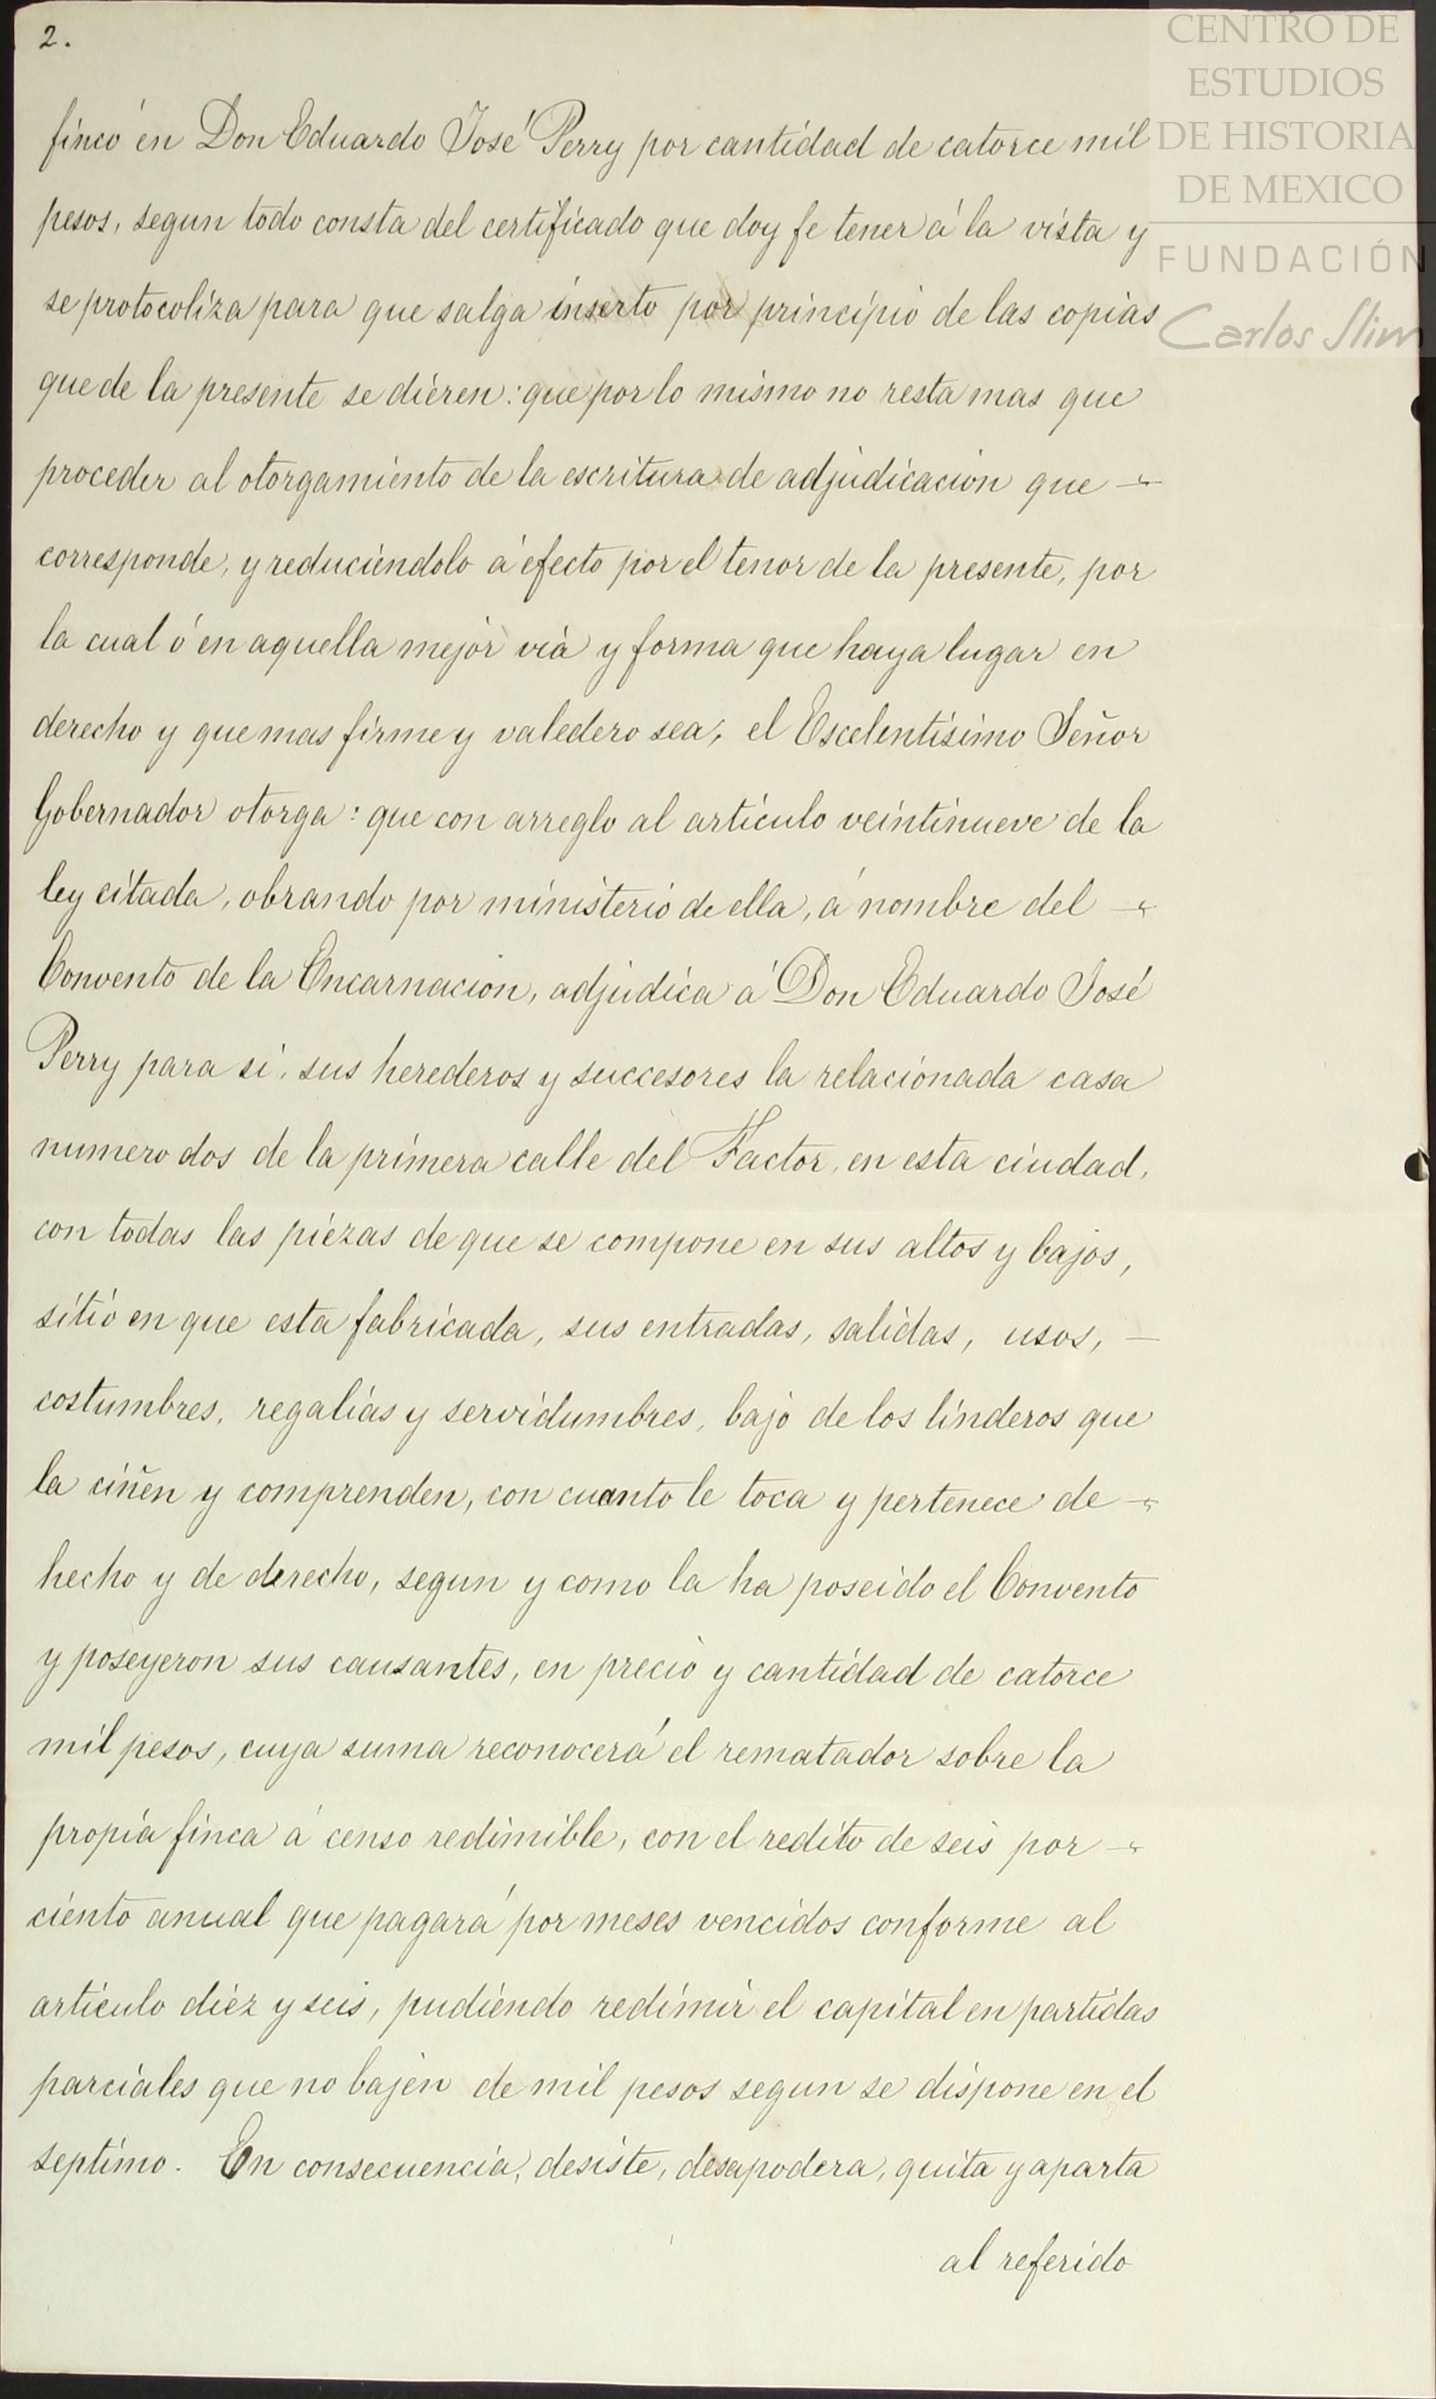 2.
CENTRO DE
ESTUDIOS
DE HISTORIA
DE MEXICO
FUNDACIÓN
Carlos Slim
fincó en Don Eduardo José Perry por cantidad de catorce mil
pesos, segun todo consta del certificado que doy fe tener á la vista y
se protocoliza para que salga inserto por principio de las copias
que de la presente se dieren: que por lo mismo no resta mas que
proceder al otorgamiento de la escritura de adjudicacion que —
corresponde, y reduciendolo á efecto por el tenor de la presente, por
la cual ó en aquella mejor via y forma que haya lugar en
derecho y que mas firme y valedero sea, el Escelentisimo Señor
Gobernador otorga: que con arreglo al articulo veintinueve de la
ley citada, obrando por ministerio de ella, á nombre del —
Convento de la Encarnacion, adjudica á Don Eduardo José
Perry para si, sus herederos y succesores la relacionada casa
numero dos de la primera calle del Factor, en esta ciudad,
con todas las piezas de que se compone en sus altos y bajos,
sitio en que esta fabricada, sus entradas, salidas, usos, —
costumbres, regalias y servidumbres, bajo de los linderos que
la ciñen y comprenden, con cuanto le toca y pertenece de —
hecho y de derecho, segun y como la ha poseido el Convento
y poseyeron sus causantes, en precio y cantidad de catorce
mil pesos, cuya suma reconocerá el rematador sobre la
propia finca á censo redimible, con el redito de seis por —
ciento anual que pagará por meses vencidos conforme al
articulo diez y seis, pudiendo redimir el capital en partidas
parciales que no bajen de mil pesos segun se dispone en el
septimo. En consecuencia, desiste, desapodera, quita y aparta
al referido